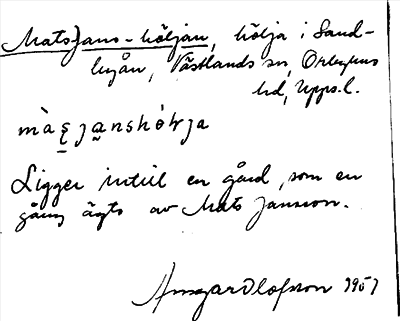 Mats Jans-höljan, hölja i Sand-
byån, Västlands sn, Örbyhus
hd, Upps. l.
Ligger intill en gård, som en
gång ägts av Mats Jansson.
Ansgar Olofsson 1951